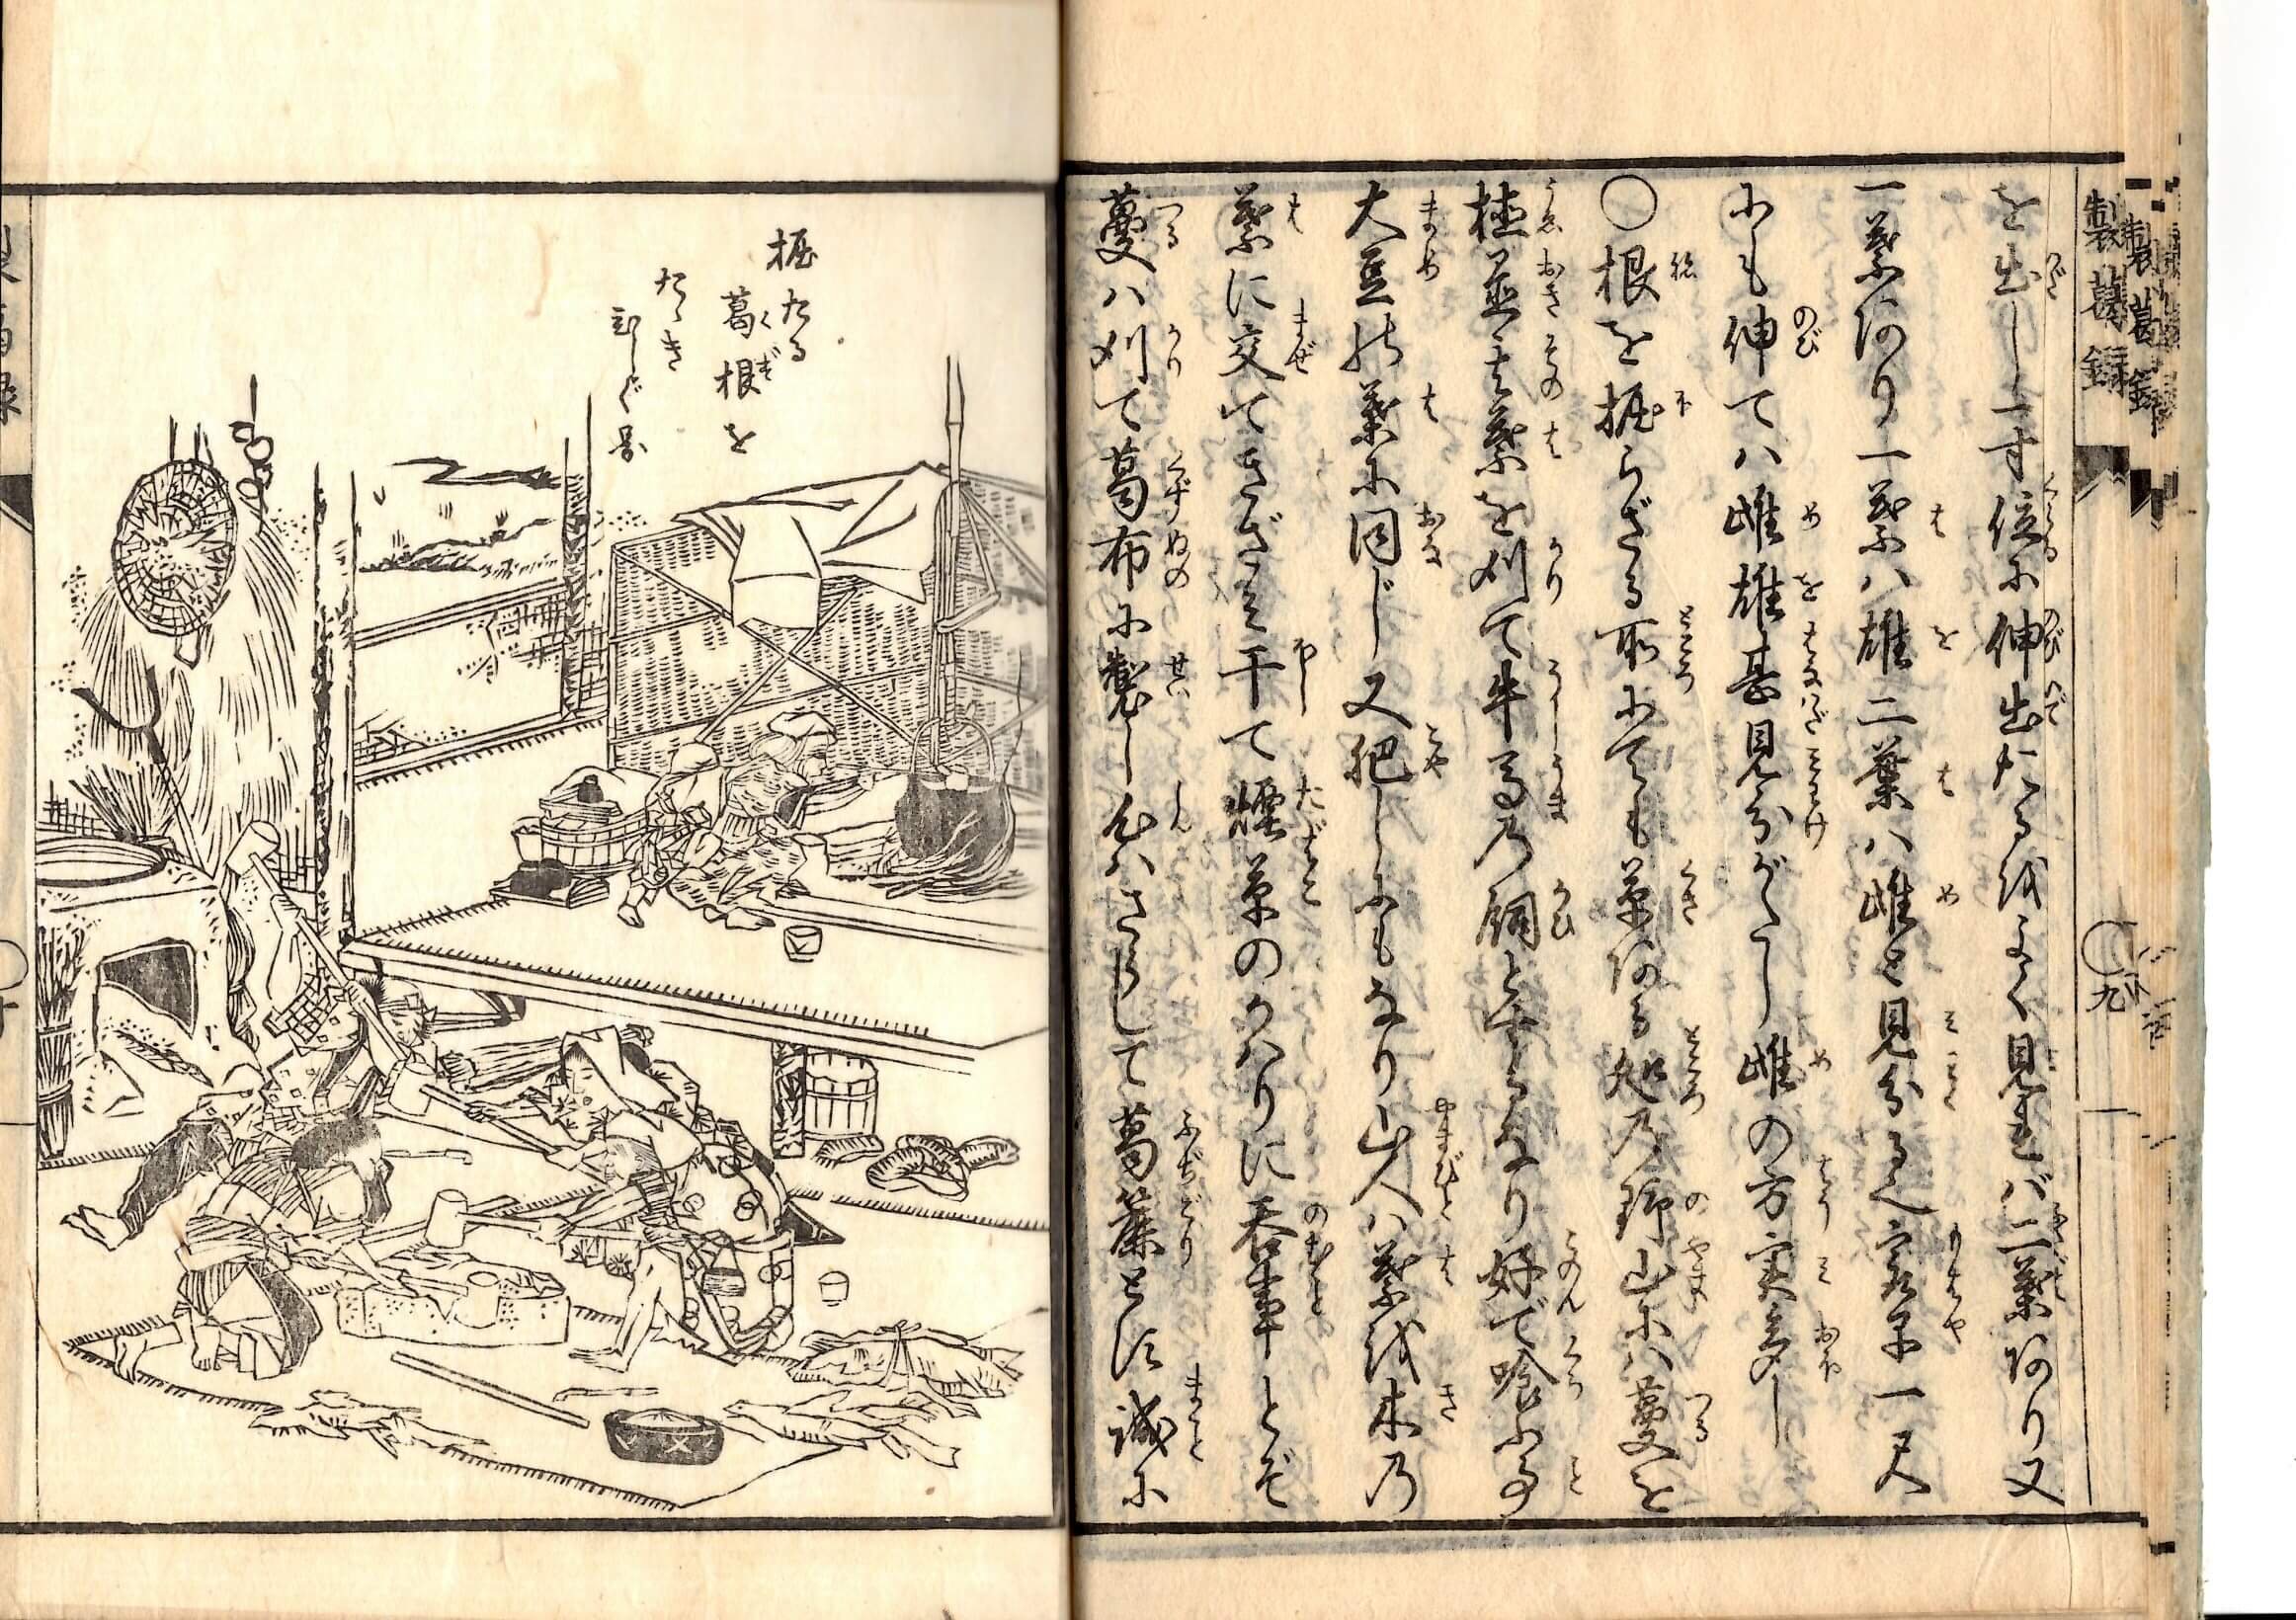 を出し一寸位に伸出たるをよく見れバ二葉あり又
一葉あり一葉ハ雄二葉ハ雌と見分る也最早一尺
にも伸てハ雌雄甚見分がたし雌の方実多し
○根を掘らざる所にても草ある処の野山にハ蔓を
植置其葉を刈て牛馬の飼とするなり好で喰ふ事
大豆の葉に同じ又肥しにもなり山人ハ葉を木の
葉に交てきざみ干て煙草のかハりに呑事とぞ
蔓ハ刈て葛布に製し又ハさらして葛簾とす誠に
製葛録
九
掘たる
葛根を
たゝき
ひしぐ図